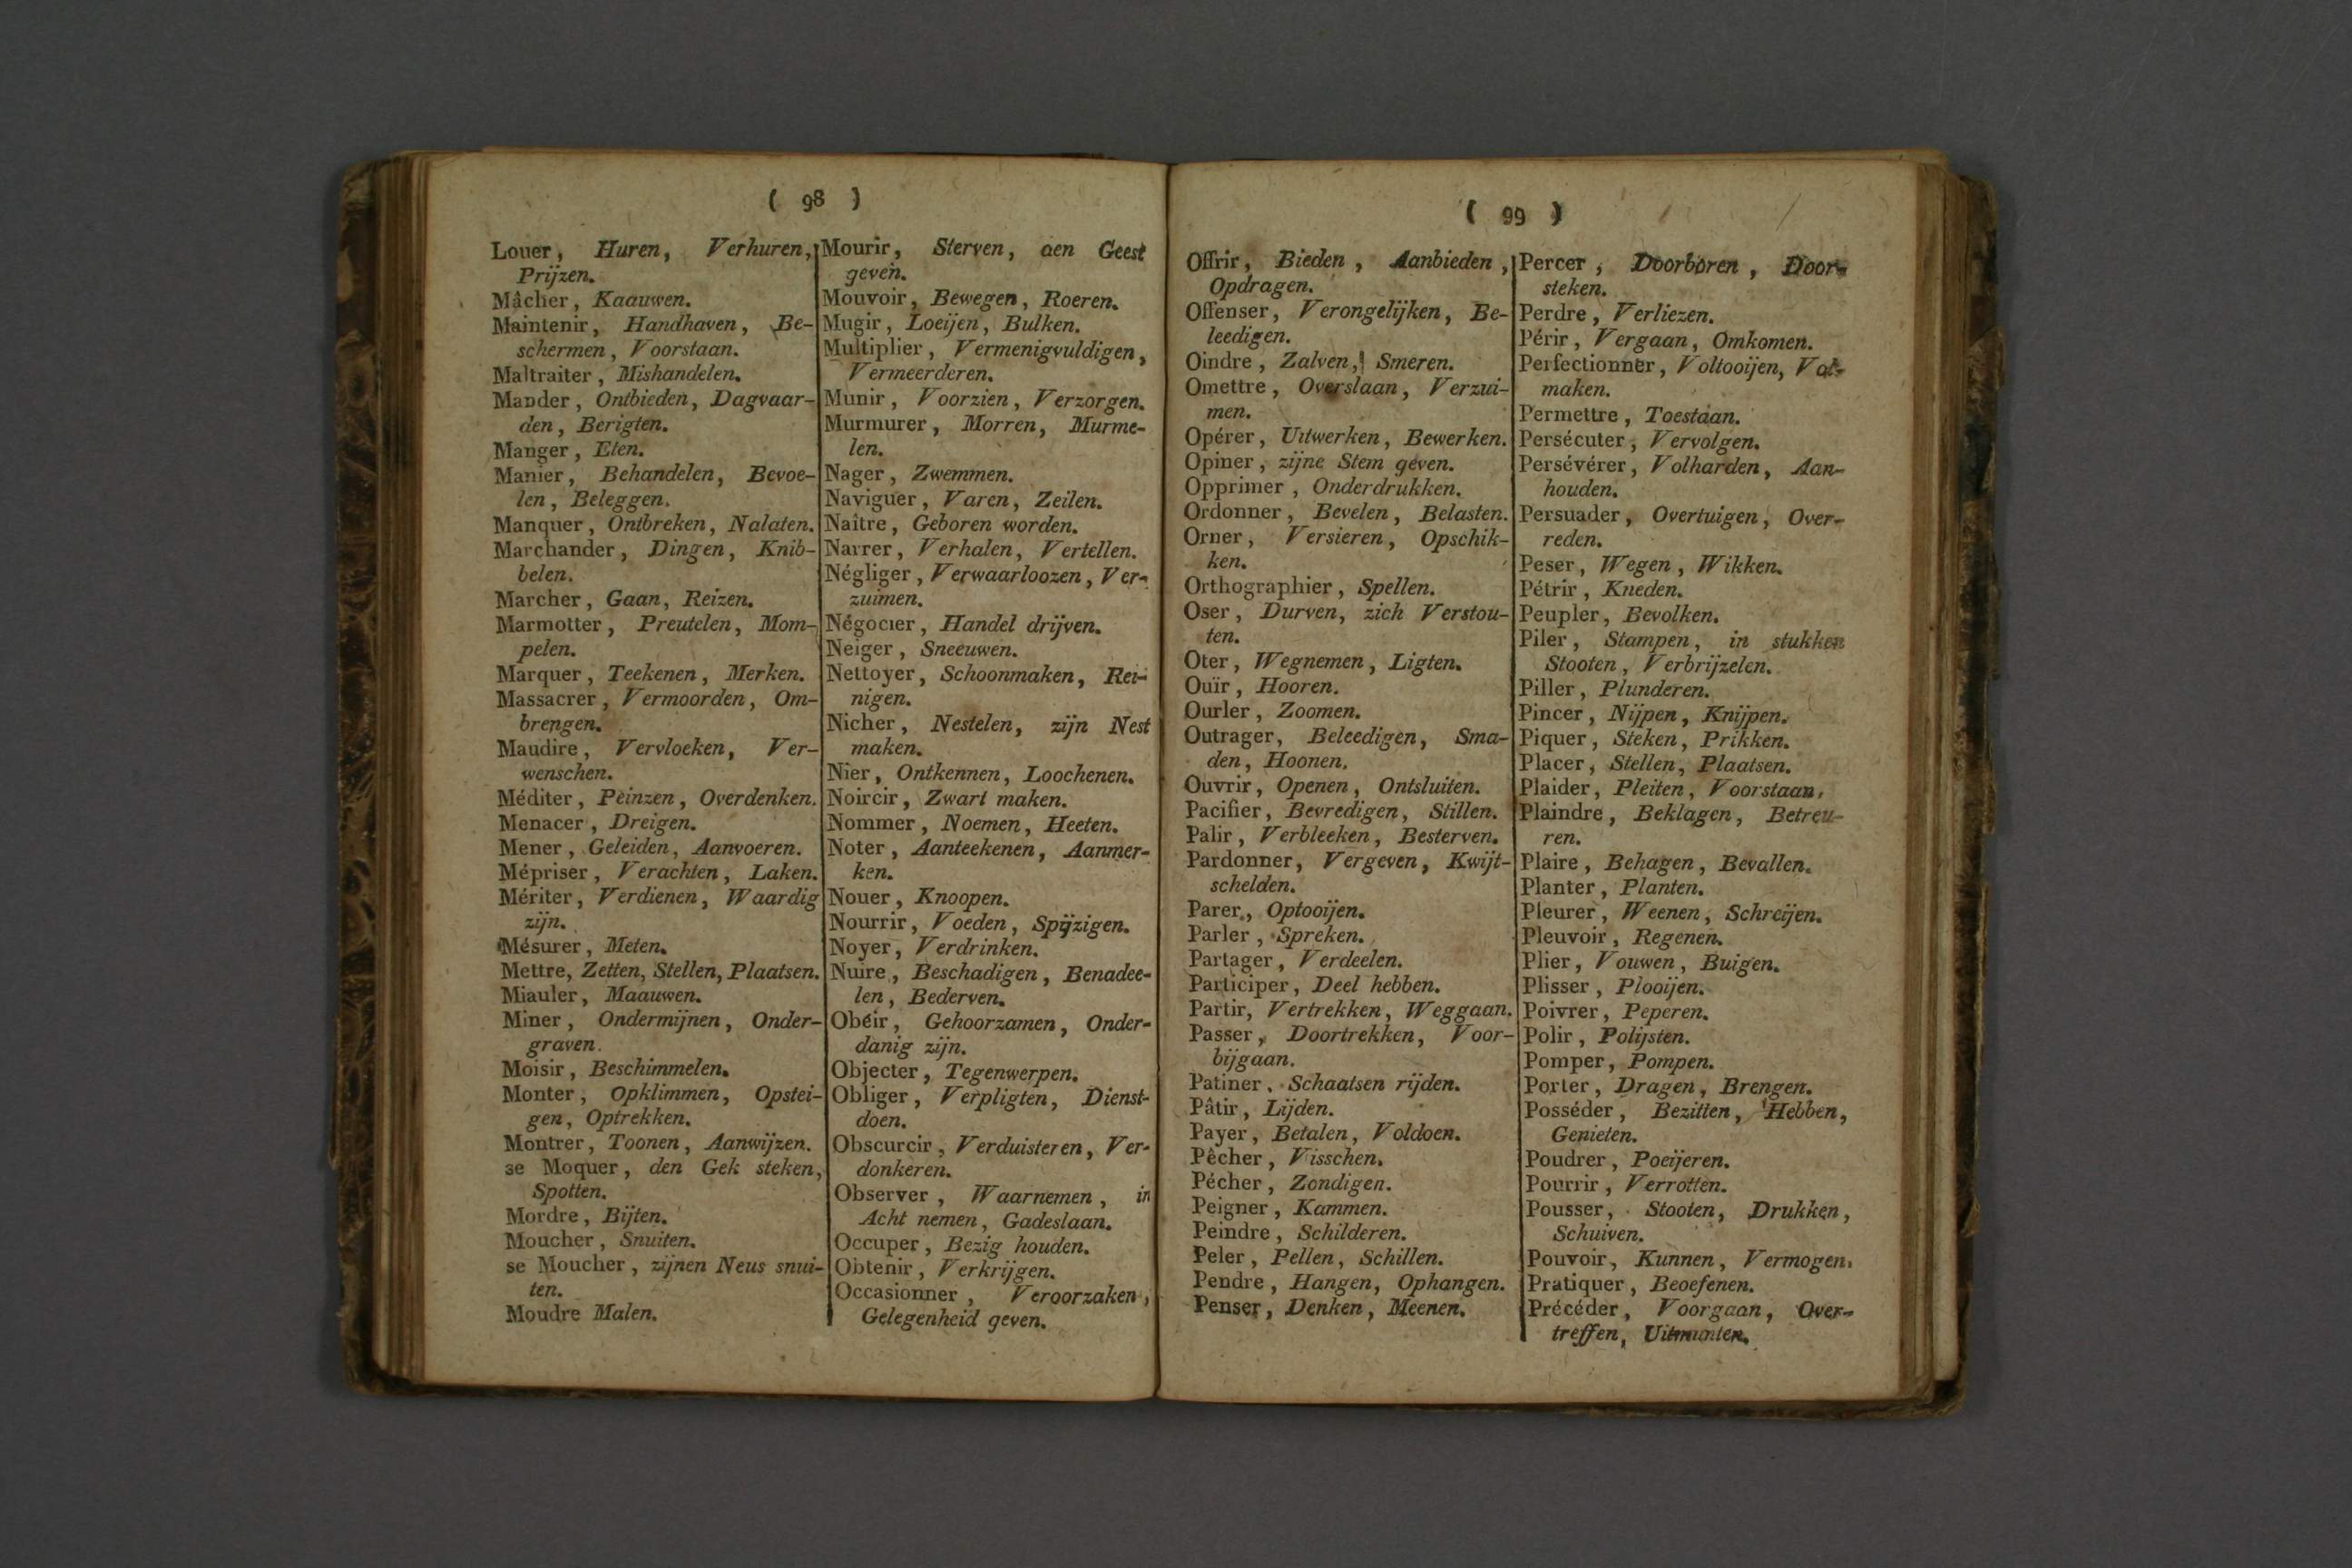 ( 98 )
Louer, Huren, Verhuren,
Prijzen.
Mâcher, Kaauwen.
Maintenir, Handhaven, Be-
schermen, Voorstaan.
Maltraiter, Mishandelen.
Mander, Ontbieden, Dagvaar-
den, Berigten.
Manger, Eten.
Manier, Behandelen, Bevoe-
len, Beleggen.
Manquer, Ontbreken, Nalaten.
Marchander, Dingen, Knib-
belen.
Marcher, Gaan, Reizen.
Marmotter, Preutelen, Mom-
pelen.
Marquer, Teekenen, Merken.
Massacrer, Vermoorden, Om-
brengen.
Maudire, Vervloeken, Ver-
wenschen.
Méditer, Peinzen, Overdenken.
Menacer, Dreigen.
Mener, Geleiden, Aanvoeren.
Mépriser, Verachten, Laken.
Mériter, Verdienen, Waardig
zijn.
Mésurer, Meten.
Mettre, Zetten, Stellen, Plaatsen.
Miauler, Maauwen.
Miner, Ondermijnen, Onder-
graven.
Moisir, Beschimmelen.
Monter, Opklimmen, Opstei-
gen, Optrekken.
Montrer, Toonen, Aanwijzen.
se Moquer, den Gek steken,
Spotten.
Mordre, Bijten.
Moucher, Snuiten.
se Moucher, zijnen Neus snui-
ten.
Moudre Malen.
Mourir, Sterven, den Geest
geven.
Mouvoir, Bewegen, Roeren.
Mugir, Loeijen, Bulken.
Multiplier, Vermenigvuldigen,
Vermeerderen.
Munir, Voorzien, Verzorgen.
Murmurer, Morren, Murme-
len.
Nager, Zwemmen.
Naviguer, Varen, Zeilen.
Naître, Geboren worden.
Narrer, Verhalen, Vertellen.
Négliger, Verwaarloozen, Ver-
zuimen.
Négocier, Handel drijven.
Neiger, Sneeuwen.
Nettoyer, Schoonmaken, Rei-
nigen.
Nicher, Nestelen, zijn Nest
maken.
Nier, Ontkennen, Loochenen.
Noircir, Zwart maken.
Nommer, Noemen, Heeten.
Noter, Aanteekenen, Aanmer-
ken.
Nouer, Knoopen.
Nourrir, Voeden, Spijzigen.
Noyer, Verdrinken.
Nuire, Beschadigen, Benadee-
len, Bederven.
Obéir, Gehoorzamen, Onder-
danig zijn.
Objecter, Tegenwerpen.
Obliger, Verpligten, Dienst-
doen.
Obscurcir, Verduisteren, Ver-
donkeren.
Observer, Waarnemen, in
Acht nemen, Gadeslaan.
Occuper, Bezig houden.
Obtenir, Verkrijgen.
Occasionner, Veroorzaken,
Gelegenheid geven.
( 99 )
Offrir, Bieden, Aanbieden,
Opdragen.
Offenser, Verongelijken, Be-
leedigen.
Oindre, Zalven, Smeren.
Omettre, Overslaan, Verzui-
men.
Opérer, Uitwerken, Bewerken.
Opiner, zijne Stem geven.
Opprimer, Onderdrukken.
Ordonner, Bevelen, Belasten.
Orner, Versieren, Opschik-
ken.
Orthographier, Spellen.
Oser, Durven, zich Verstou-
ten.
Oter, Wegnemen, Ligten.
Ouïr, Hooren.
Ourler, Zoomen.
Outrager, Beleedigen, Sma-
den, Hoonen.
Ouvrir, Openen, Ontsluiten.
Pacifier, Bevredigen, Stillen.
Palir, Verbleeken, Besterven.
Pardonner, Vergeven, Kwijt-
schelden.
Parer, Optooijen.
Parler, Spreken.
Partager, Verdeelen.
Participer, Deel hebben.
Partir, Vertrekken, Weggaan.
Passer, Doortrekken, Voor-
bijgaan.
Patiner, Schaatsen rijden.
Pâtir, Lijden.
Payer, Betalen, Voldoen.
Pêcher, Visschen.
Pécher, Zondigen.
Peigner, Kammen.
Peindre, Schilderen.
Peler, Pellen, Schillen.
Pendre, Hangen, Ophangen.
Penser, Denken, Meenen.
Percer, Doorboren, Door-
steken.
Perdre, Verliezen.
Périr, Vergaan, Omkomen.
Perfectionner, Voltooijen, Vol-
maken.
Permettre, Toestaan.
Persécuter, Vervolgen.
Persévérer, Volharden, Aan-
houden.
Persuader, Overtuigen, Over-
reden.
Peser, Wegen, Wikken.
Pétrir, Kneden.
Peupler, Bevolken.
Piler, Stampen, in stukken
Stooten, Verbrijzelen.
Piller, Plunderen.
Pincer, Nijpen, Knijpen.
Piquer, Steken, Prikken.
Placer, Stellen, Plaatsen.
Plaider, Pleiten, Voorstaan.
Plaindre, Beklagen, Betreu-
ren.
Plaire, Behagen, Bevallen.
Planter, Planten.
Pleurer, Weenen, Schreijen.
Pleuvoir, Regenen.
Plier, Vouwen, Buigen.
Plisser, Plooijen.
Poivrer, Peperen.
Polir, Polijsten.
Pomper, Pompen.
Porter, Dragen, Brengen.
Posséder, Bezitten, Hebben,
Genieten.
Poudrer, Poeijeren.
Pourrir, Verrotten.
Pousser, Stooten, Drukken,
Schuiven.
Pouvoir, Kunnen, Vermogen.
Pratiquer, Beoefenen.
Précéder, Voorgaan, Over-
treffen, Uitmunten.